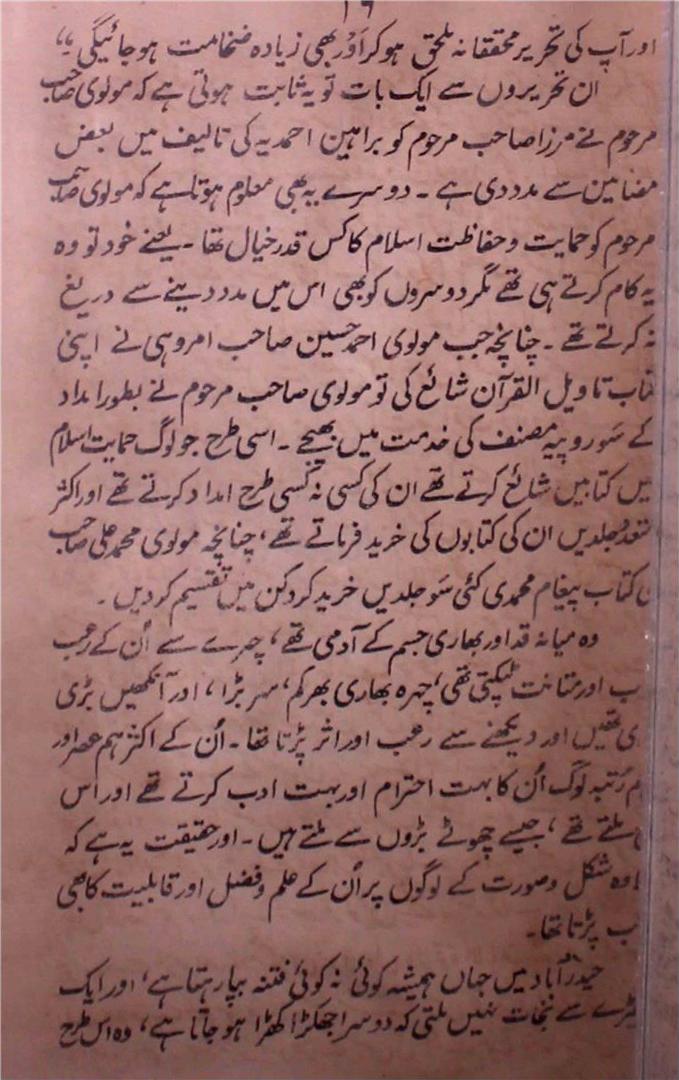 ۱۶
اور آپ کی تحریر محققانہ ملحق ہو کر اَوْر بھی زیادہ ضخامت ہو جائیگی ،،
ان تحریروں سے ایک بات تو یہ ثابت ہوتی ہے کہ مولوی صاحب
مرحوم نے مرزا صاحب مرحوم کو براہین احمدیہ کی تالیف میں بعض
مضامین سے مدد دی ہے ۔ دوسرے یہ بھی معلوم ہوتا ہے کہ مولوی صاحب
مرحوم کو حمایت و حفاظت اسلام کا کس قدر خیال تھا ۔ یعنے خود تو وہ
یہ کام کرتے ہی تھے مگر دوسروں کو بھی اس میں مدد دینے سے دریغ
نہ کرتے تھے ۔ چنانچہ جب مولوی احمد حسین صاحب امروہی نے اپنی
کتاب تاویل القرآن شائع کی تو مولوی صاحب مرحوم نے بطور امداد
کے سَو روپیہ مصنف کی خدمت میں بھیجے ۔ اسی طرح جو لوگ حمایت اسلام
میں کتابیں شائع کرتے تھے ان کی کسی نہ کسی طرح امداد کرتے تھے اور اکثر
متعدد جلدیں ان کی کتابوں کی خرید فرماتے تھے ، چنانچہ مولوی محمد علی صاحب
کتاب پیغام محمدی کئی سَو جلدیں خرید کر دکن میں تقسیم کر دیں ۔
وہ میانہ قد اور بھاری جسم کے آدمی تھے ، چہرے سے اُن کے رعب
اور متانت ٹپکتی تھی ، چہرہ بھاری بھر کم ، سر بڑا ، اور آنکھیں بڑی
تھیں اور دیکھنے سے رعب اور اثر پڑتا تھا ۔ اُن کے اکثر ہم عصر اور
ہم رُتبہ لوگ اُن کا بہت احترام اور بہت ادب کرتے تھے اور اس
ملتے تھے ، جیسے چھوٹے بڑوں سے ملتے ہیں ۔ اور حقیقت یہ ہے کہ
وہ شکل و صورت کے لوگوں پر اُن کے علم و فضل اور قابلیت کا بھی
پڑتا تھا ۔
حیدرآباد میں جہاں ہمیشہ کوئی نہ کوئی فتنہ بپا رہتا ہے ، اور ایک
سے نجات نہیں ملتی کہ دوسرا جھگڑا کھڑا ہو جاتا ہے ، وہ اس طرح